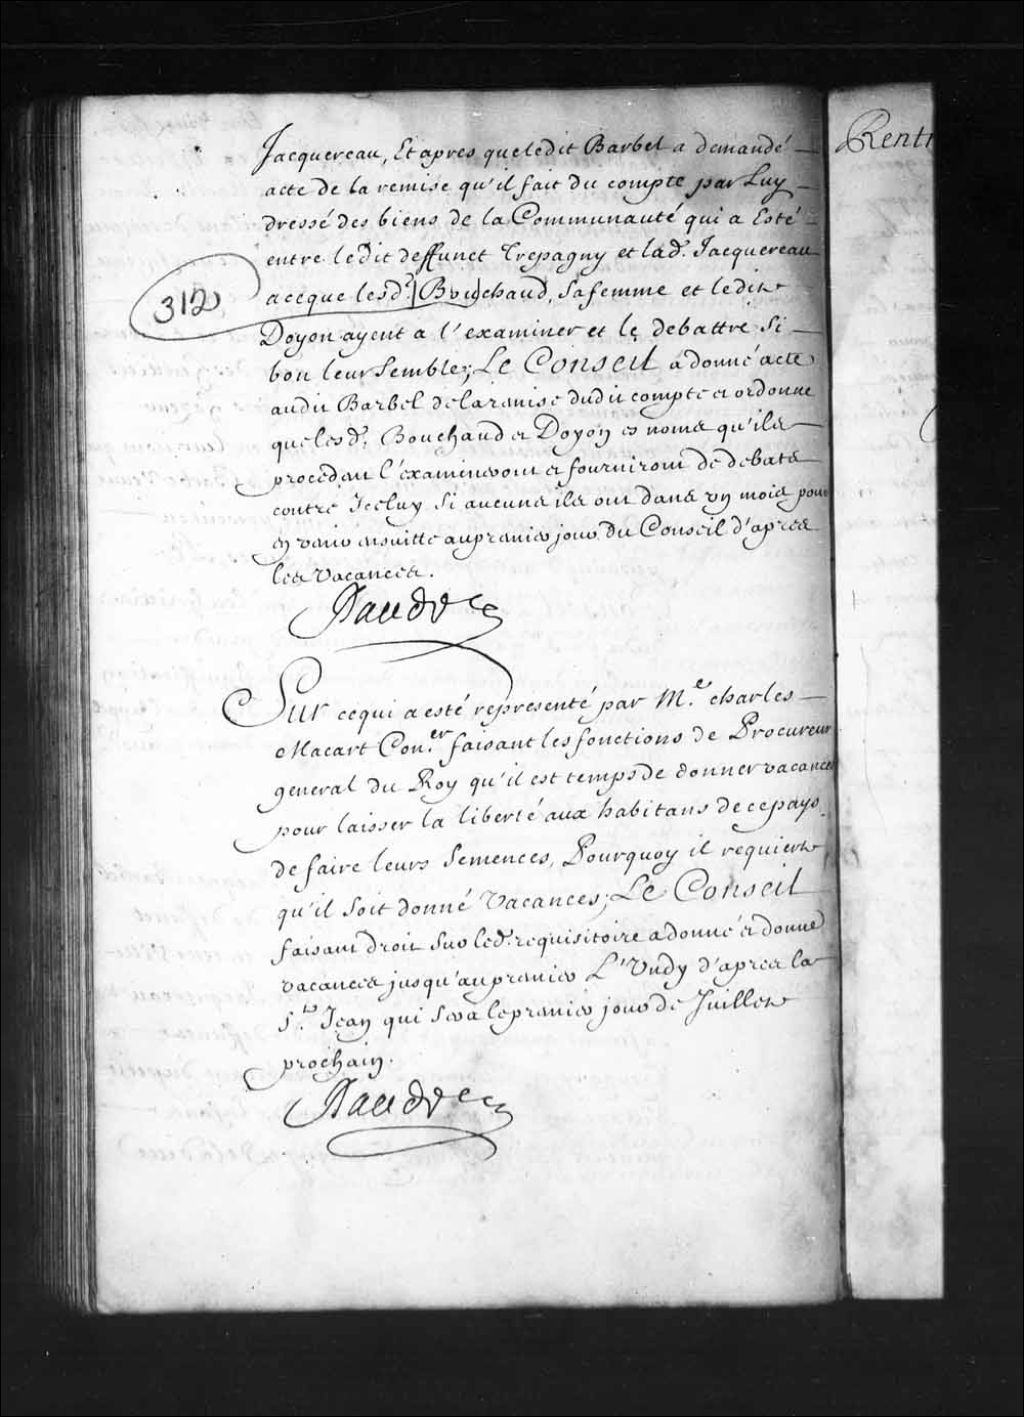 Jacquereau, Et apres que ledit Barbel a demandé
acte de la remise qu'il fait du compte par Luy
dressé des biens de la Communauté qui a Esté
entre ledit deffunct Trepagny et lad. Jacquereau
312
a ceque lesd. Bouchaud, sa femme et ledit
Doyon ayent a l'examiner et le debattre si
bon leur semble; Le Conseil a donné acte
audit Barbel de la remise dudit compte et ordonne
que lesd. Bouchaud et Doyon es noms qu'ils
procedent l'examineront et fourniront de debats
contre Iceluy si aucuns ils ont dans un mois pour
en venir ensuitte au premier jour du Conseil d'apres
les vacances.
Sur cequi a esté representé par Me. charles
Macart Coner. faisant les fonctions de Procureur
general du Roy qu'il est temps de donner vacances
pour laisser la liberté aux habitans de ce pays
de faire leurs semences, Pourquoy il requiert
qu'il soit donné Vacances; Le Conseil
faisant droit sur led. requisitoire a donné et donne
vacances jusqu'au premier L'Undy d'apres la
St. Jean qui sera le premier jour de Juillet
prochain.
Rentr